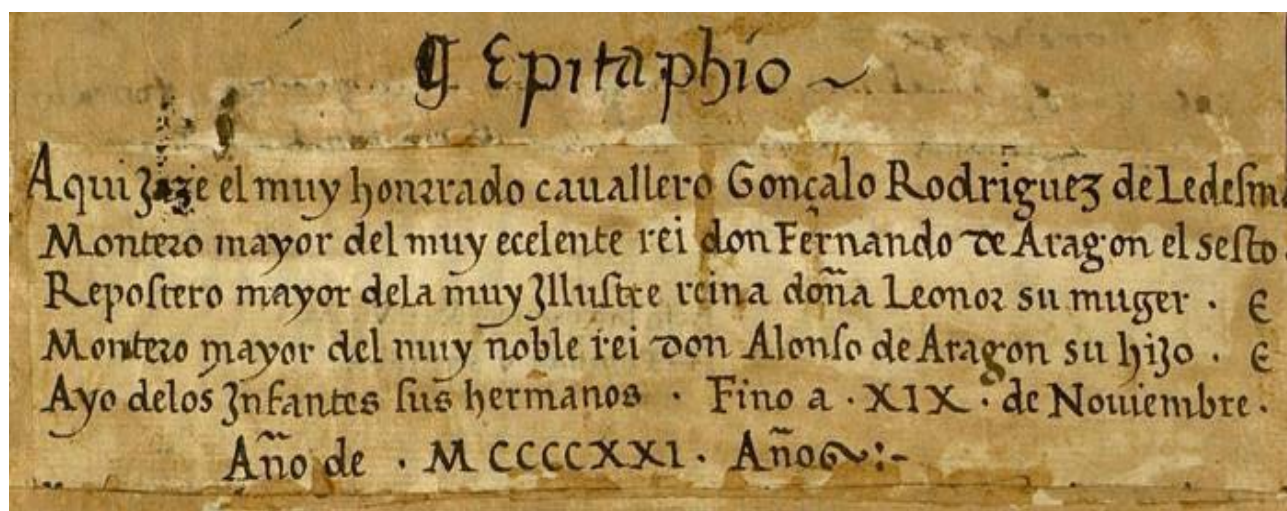 ¶ Epitaphio ~
Aqui Jaze el muy honrrado cauallero Gonçalo Rodriguez de Ledesma
Montero mayor del muy ecelente rei don Fernando de Aragon el sesto.
Repostero mayor dela muy Jllustre reina doña Leonor su muger . E
Montero mayor del muy noble rei don Alonso de Aragon su hijo . E
Ayo delos Jnfantes sus hermanos . Fino a . XIX . de Nouiembre .
Año de . MCCCCXXI . Años :-